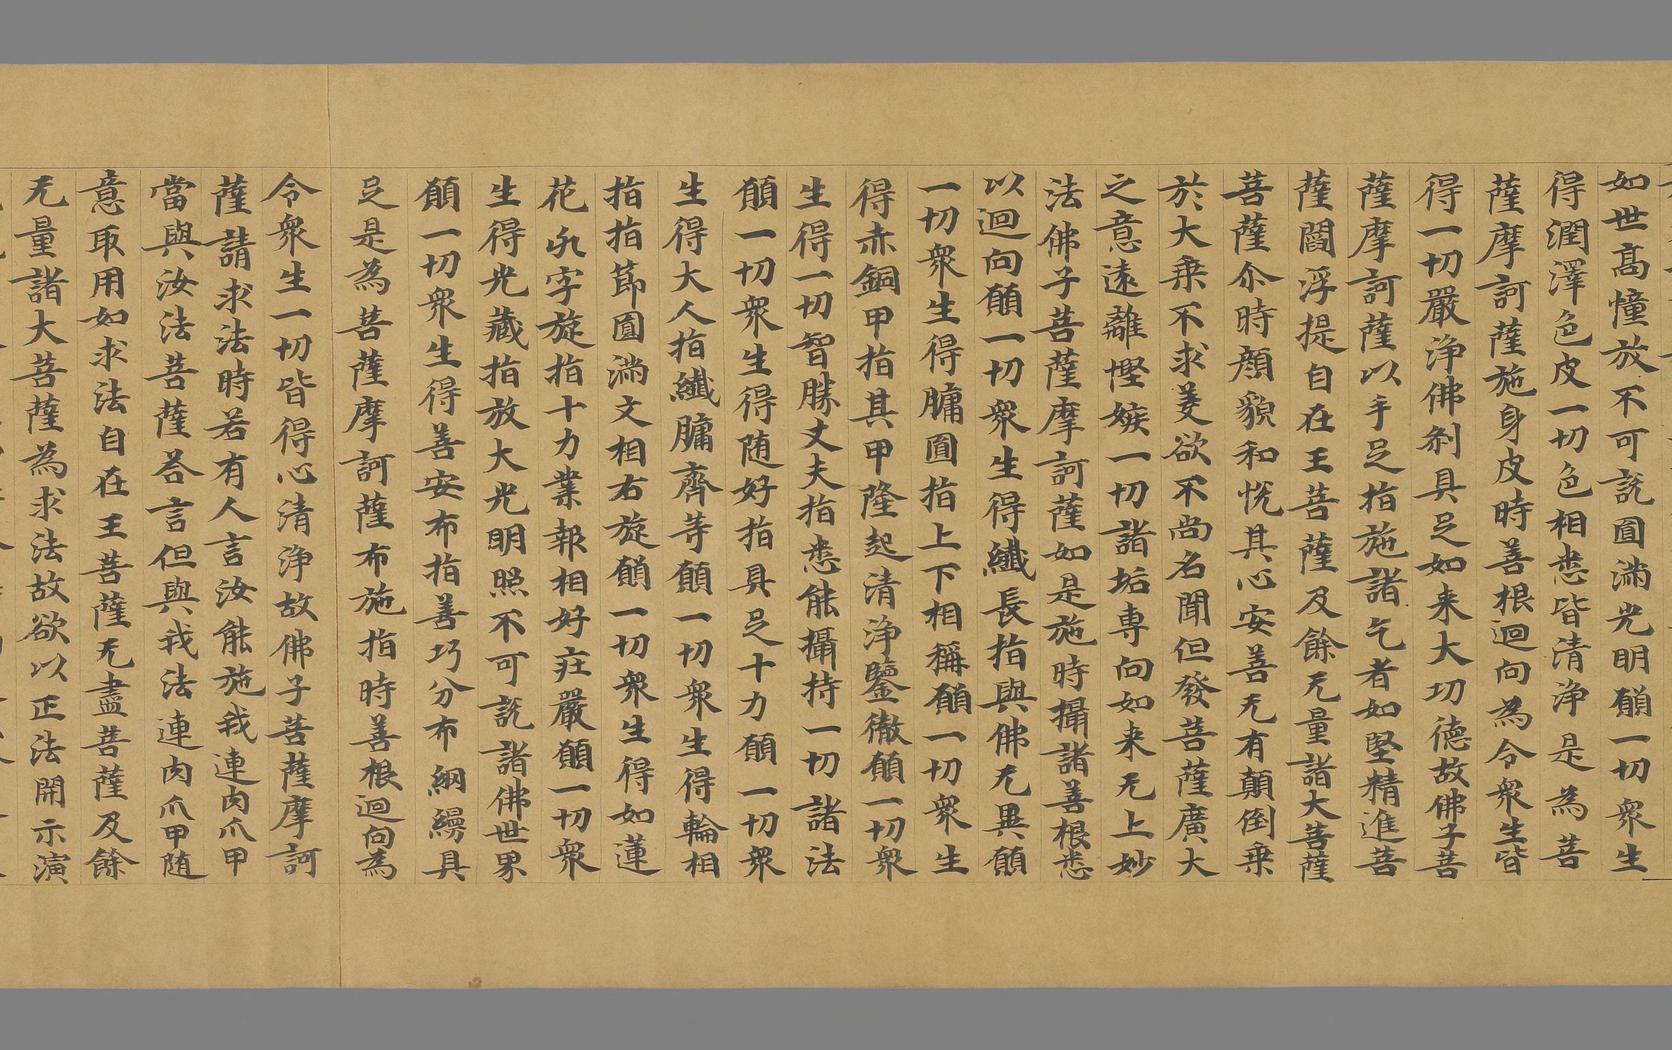 如世髙憧放不可説圓滿光明願一切衆生
得潤澤色皮一切色相悉皆清浄是為菩
薩摩訶薩施身皮時善根迴向為令衆生皆
得一切嚴浄佛刹具足如来大切徳故佛子菩
薩摩訶薩以手足指施諸乞者如堅精進菩
薩閻浮提自在王菩薩及餘无量諸大菩薩
菩薩尒時顔貌和悦其心安善无有顛倒乗
於大乗不求羙欲不尚名聞但發菩薩廣大
之意遠離慳嫉一切諸垢専向如来无上妙
法佛子菩薩摩訶薩如是施時攝諸善根悉
以迴向願一切衆生得纖長指與佛无異願
一切衆生得𦟛圓指上下相稱願一切衆生
得赤銅甲指其甲隆起清浄鑒徹願一切衆
生得一切智勝丈夫指悉能攝持一切諸法
願一切衆生得随好指具足十力願一切衆
生得大人指纖𦟛齊等願一切衆生得輪相
指指莭圓滿文相右旋願一切衆生得如蓮
花卍字旋指十力業報相好莊嚴願一切衆
生得光藏指放大光明照不可説諸佛世界
願一切衆生得善安布指善巧分布網縵具
足是為菩薩摩訶薩布施指時善根迴向為
令衆生一切皆得心清浄故佛子菩薩摩訶
薩請求法時若有人言汝能施我連肉爪甲
當與汝法菩薩荅言但與我法連肉爪甲随
意取用如求法自在王菩薩无盡菩薩及餘
无量諸大菩薩為求法故欲以正法開示演